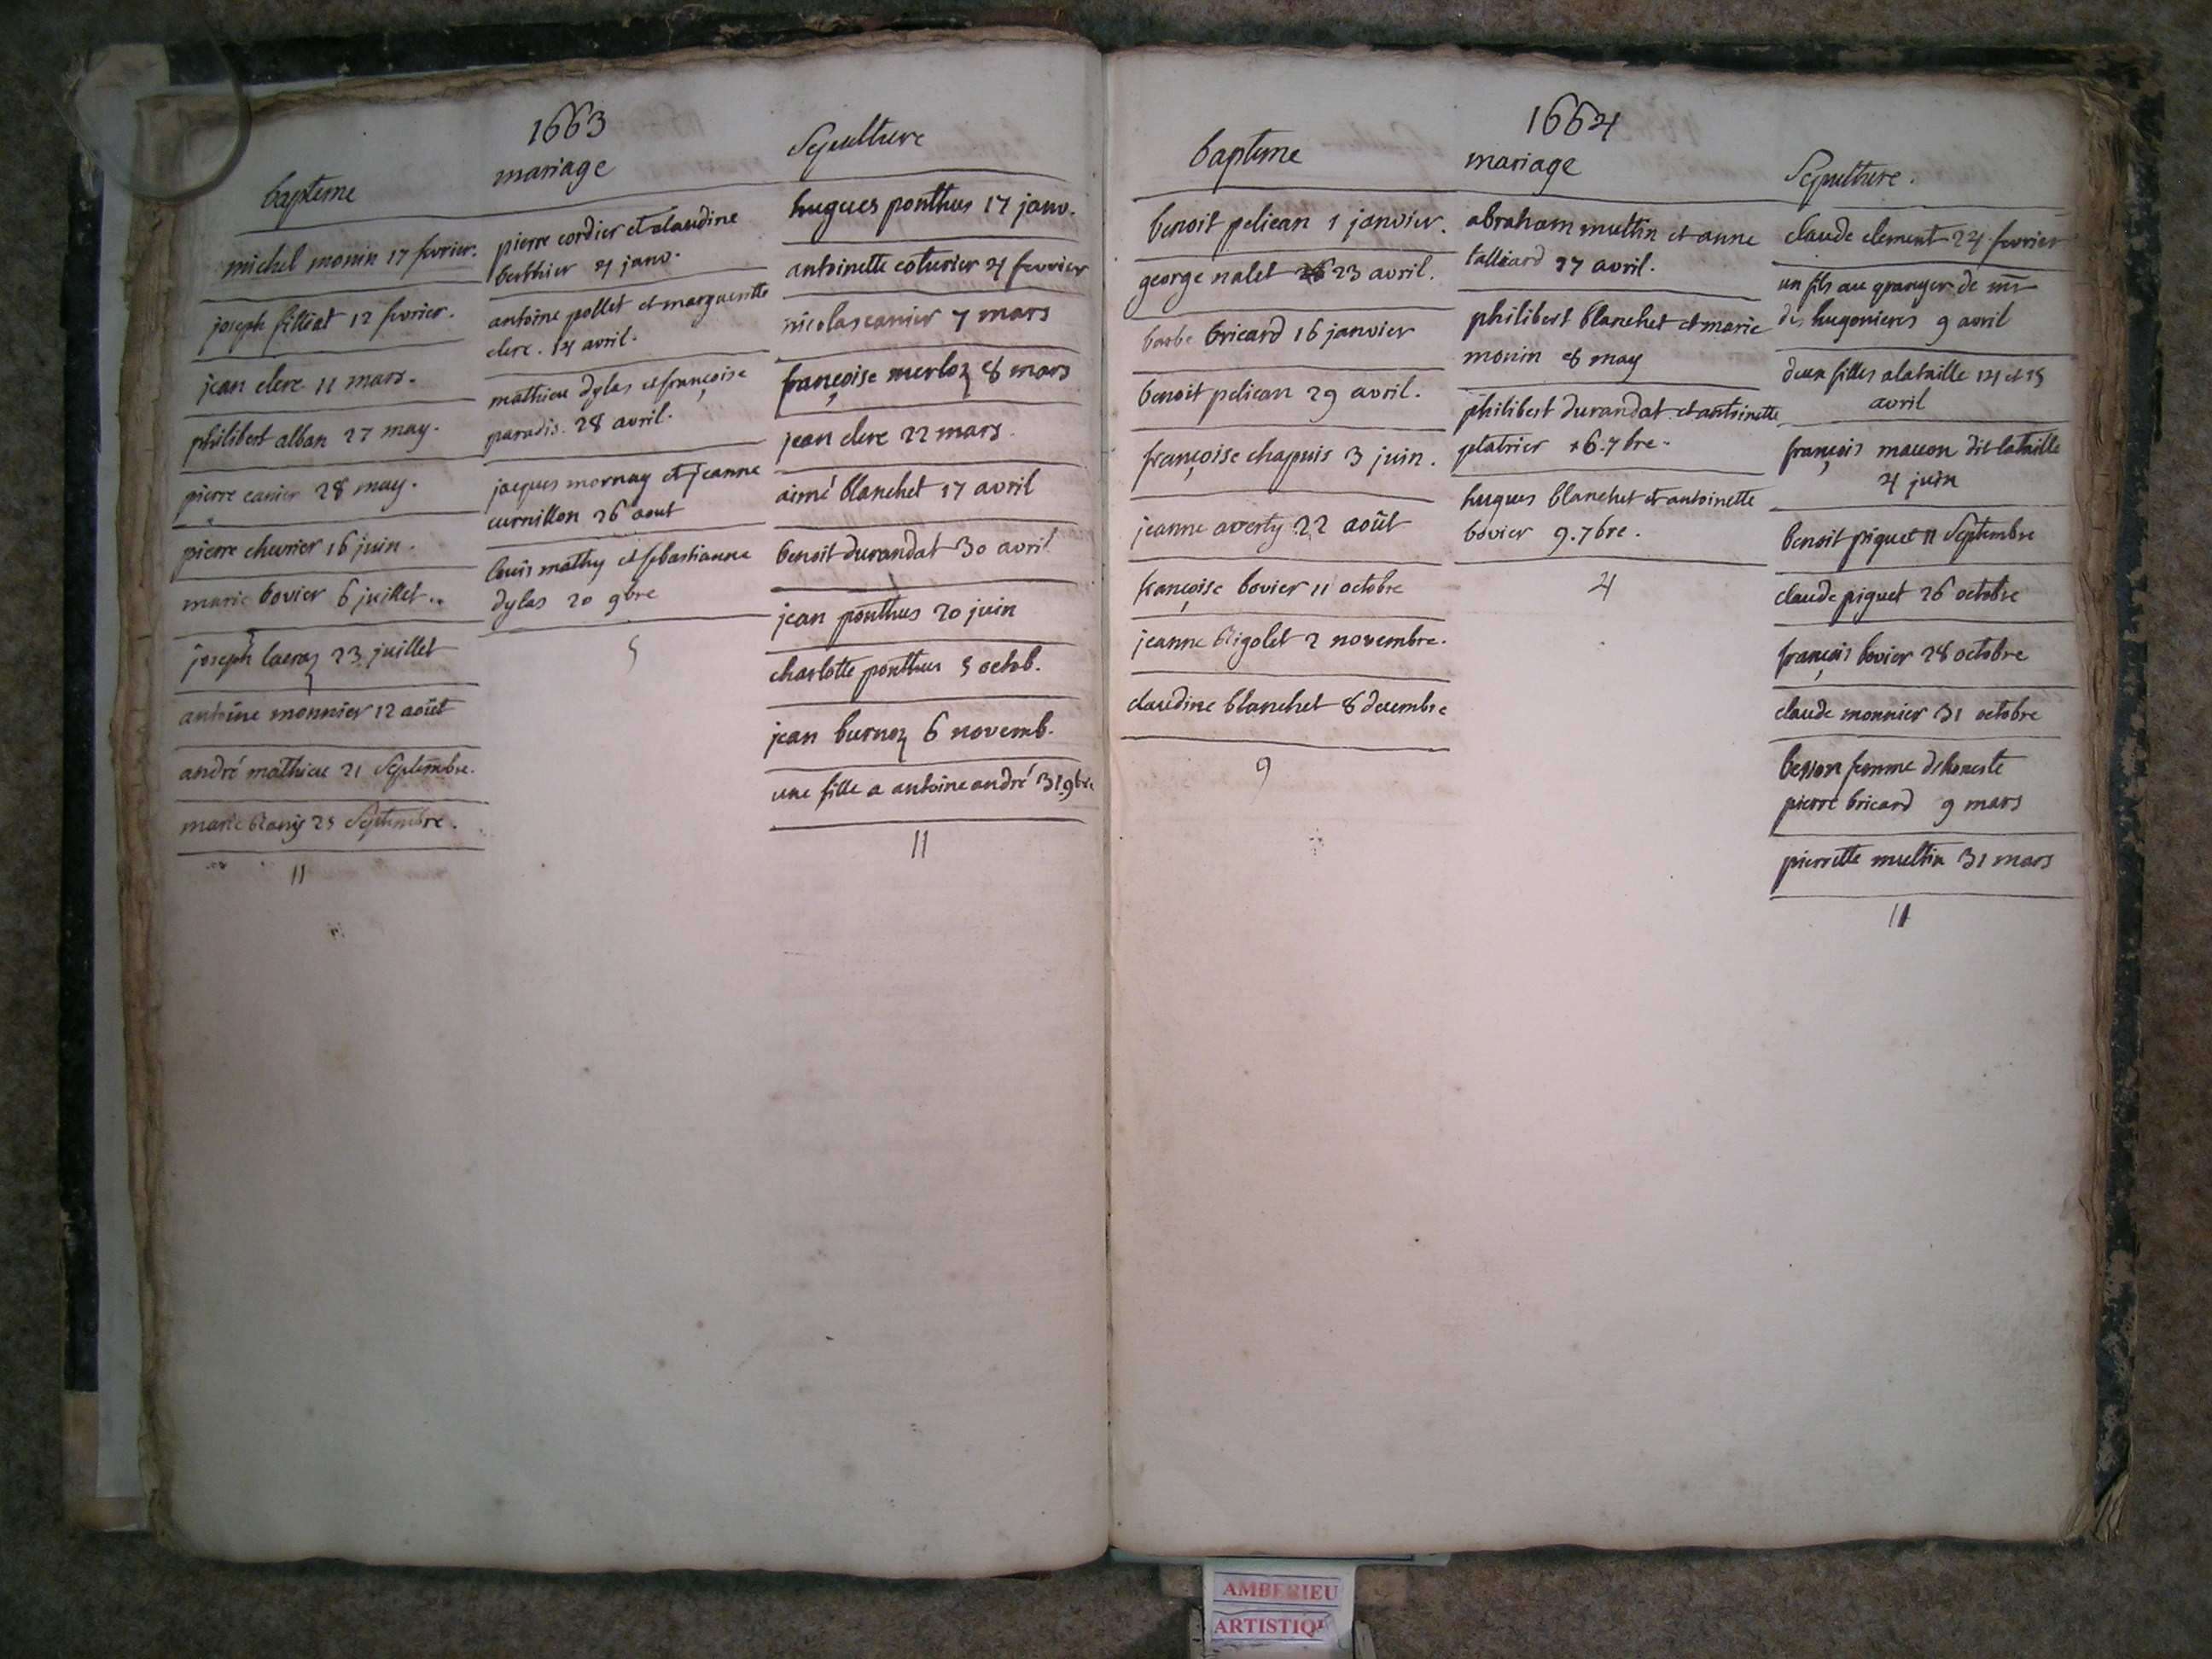 1663
bapteme
michel monin 17 fevrier.
joseph filliat 12 fevrier.
jean clerc 11 mars.
philibert alban 27 may.
pierre canier 28 may.
pierre chevrier 16 juin.
marie bovier 6 juillet..
joseph lacroz 23 juillet
antoine monnier 12 août
andré mathieu 21 Septembre.
marie 25 Septembre.
11
mariage
pierre cordier et claudine
berthier 4 janv.
antoine pollet et margueritte
clerc. 14 avril.
mathieu dylas et françoise
paradis. 28 avril.
jacques mornay et jeanne
curnillon 26 aout
louis mathy et sebastianne
dylas 20 9bre
5
Sepulture
hugues ponthus 17 janv.
antoinette coturier 4 fevrier
nicolas canier 7 mars
françoise merloz 8 mars
jean clerc 22 mars.
aimé blanchet 17 avril
benoit durandat 30 avril
jean ponthus 20 juin
charlotte ponthus 5 octob.
jean burnoz 6 novemb.
une fille a antoine andré 31.9bre
11
1664
bapteme
benoit pelican 1 janvier.
george nalet 23 avril.
barbe bricard 16 janvier
benoit pelican 29 avril.
françoise chapuis 3 juin.
jeanne averty 22 août
françoise bovier 11 octobre
jeanne Rigolet 2 novembre.
claudine blanchet 8 decembre
9
mariage
abraham multin et anne
talliard 27 avril.
philibert blanchet et marie
monin 8 may
philibert durandat et antoinette
platrier 16.7bre.
hugues blanchet et antoinette
bovier 9.7bre.
4
Sepulture.
claude clement 24 fevrier
un fils au granger de mr
des hugonieres 9 avril
deux filles a lataille 14 et 15
avril
françois macon dit lataille
4 juin
benoit piquet 11 Septembre
claude piquet 26 octobre
françois bovier 28 octobre
claude monnier 31 octobre
besson femme dhoneste
pierre bricard 9 mars
pierrette multin 31 mars
11
AMBERIEU
ARTISTIQ